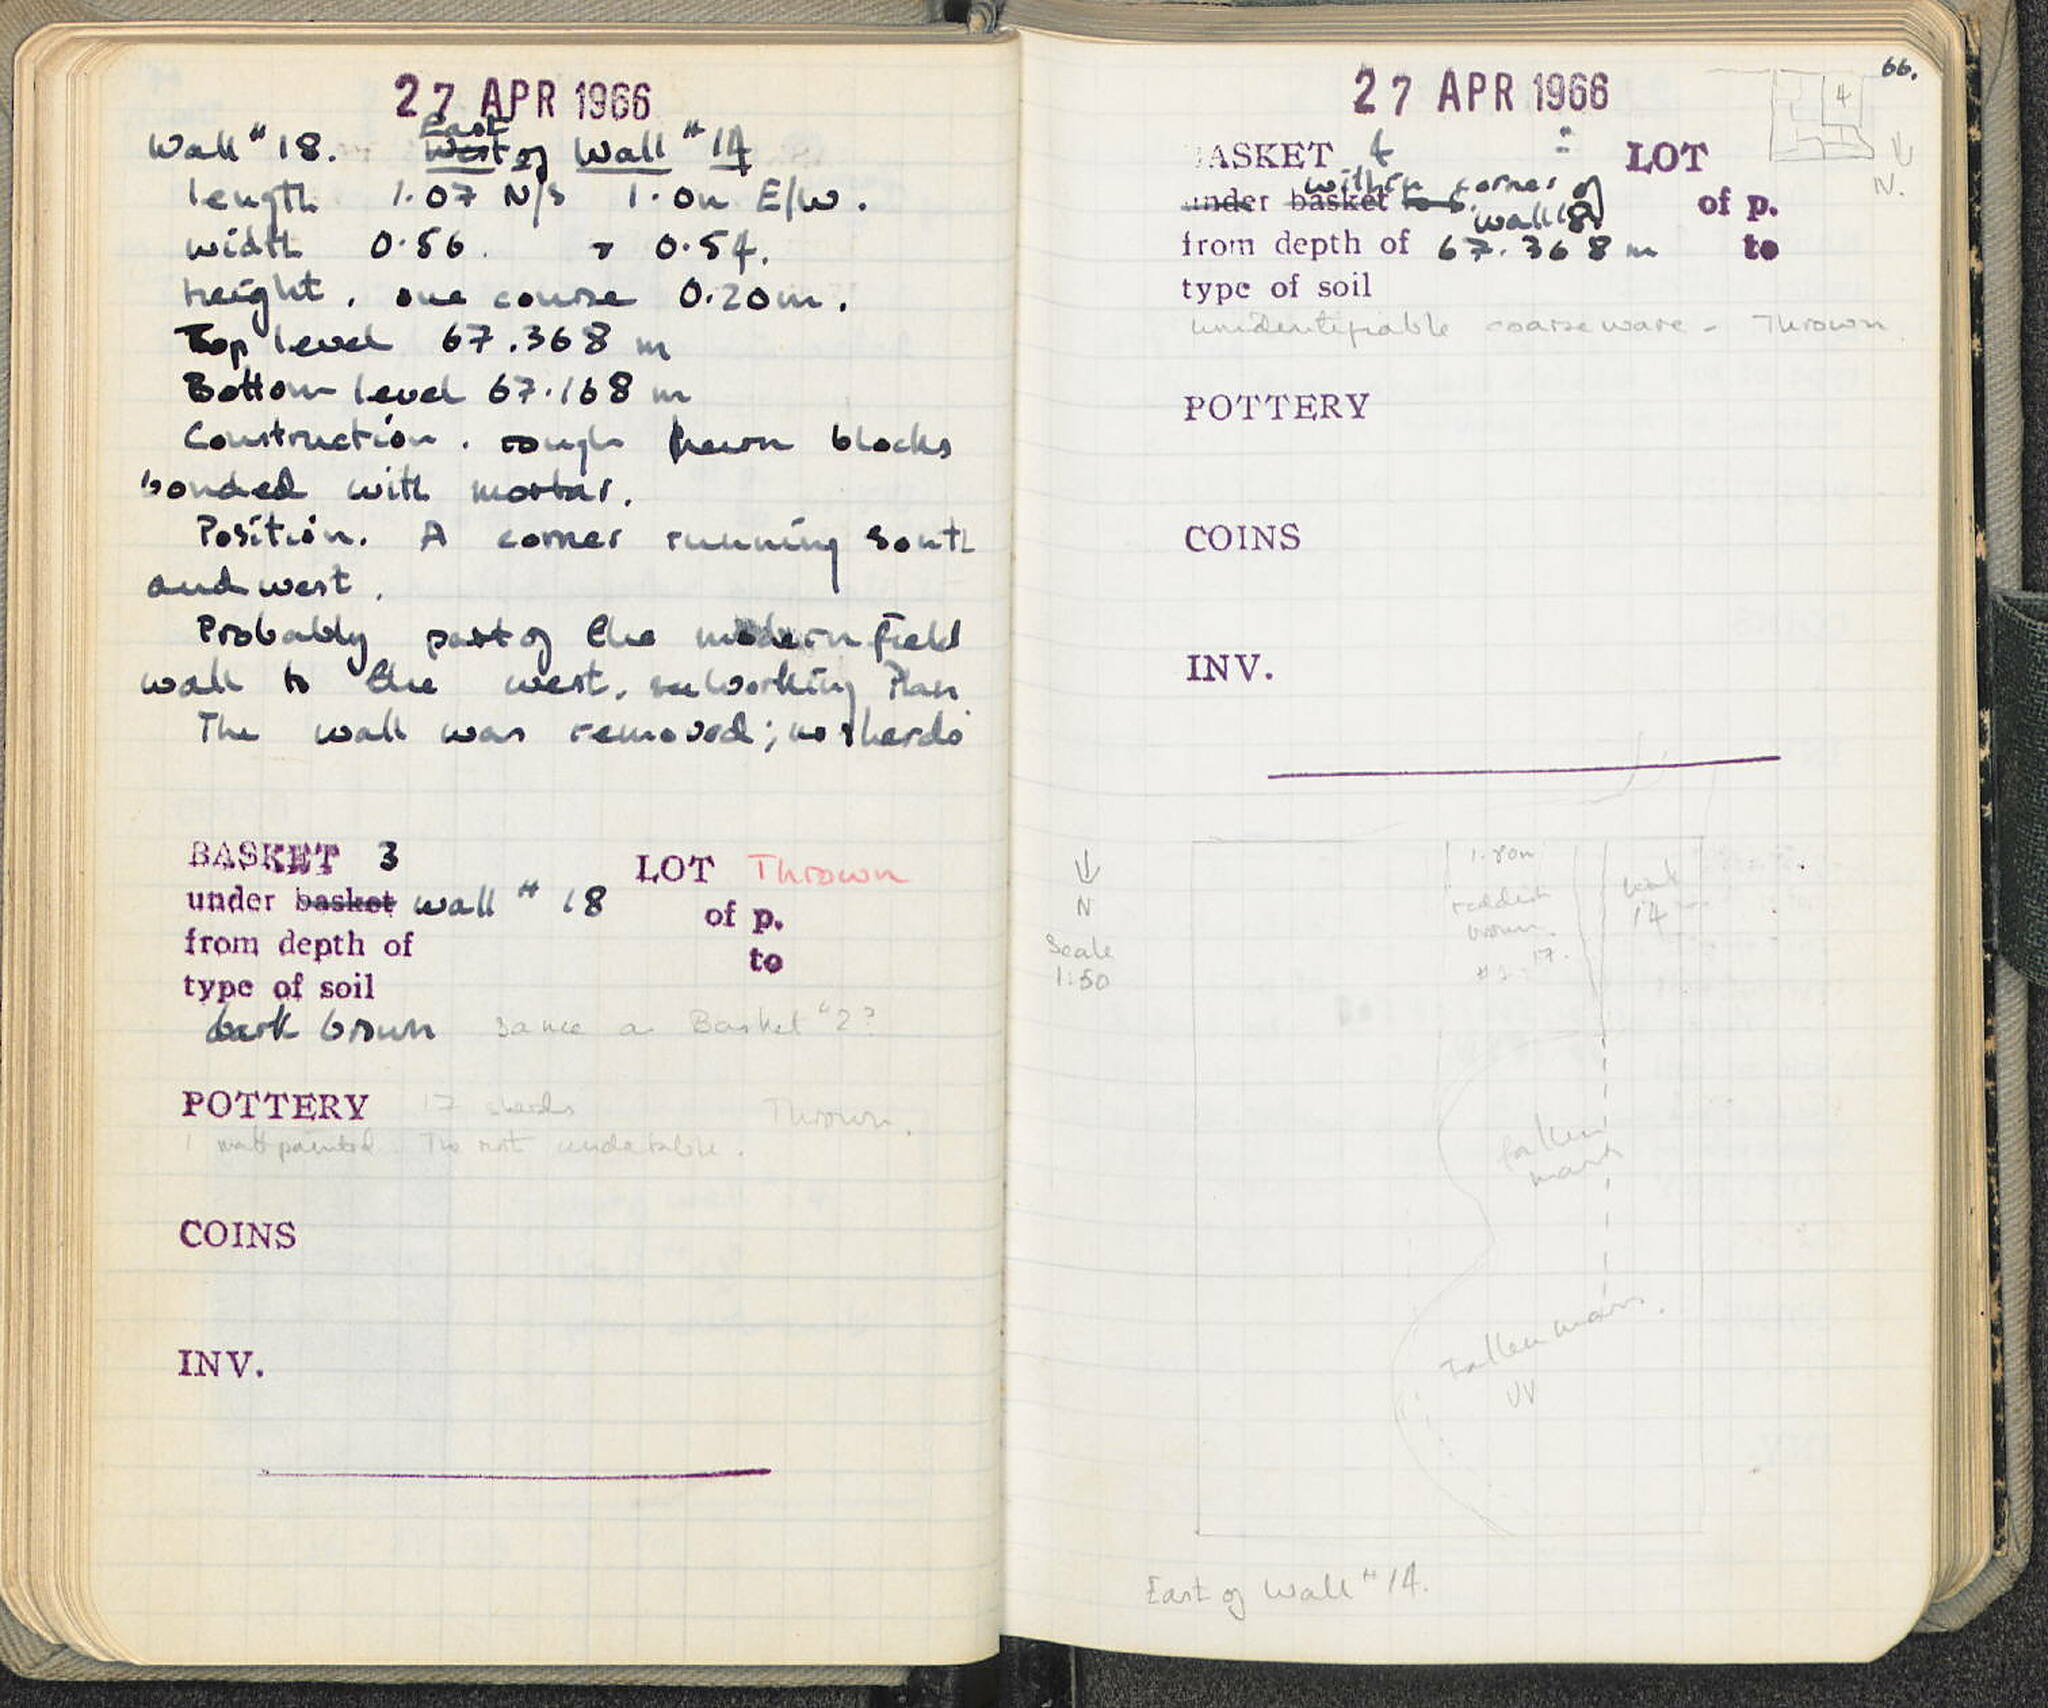 27 APR 1966
Wall #18. East West of Wall #14
length 1.07 N/S 1.0m E/W.
width 0.56. + 0.54.
height. one course 0.20m.
Top level 67.368 m
Bottom level 67.168 m
Construction. rough hewn blocks
bonded with mortar.
Position. A corner running south
and west.
Probably part of the modern field
wall to the west. see Working Plan
The wall was removed; no sherds
BASKET 3 LOT Thrown
under basket wall #18 of p.
from depth of to
type of soil
dark brown same as Basket #2?
POTTERY 17 sherds Thrown.
1 matt painted. The rest undatable.
COINS
INV.
66.
27 APR 1966
4
N.
BASKET 4 LOT
under basket within corner of wall 18 of p.
from depth of 67.368 m to
type of soil
unidentifiable coarse ware - Thrown
POTTERY
COINS
INV.
N
Scale
1:50
1.80m
reddish
brown
wall
14
fallen
Fallen
East of Wall #14.